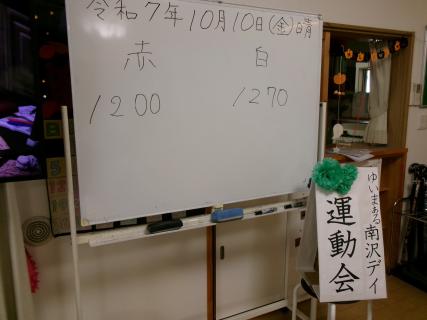 令和7年10月10日(金)晴
赤 白
1200 1270
ゆいまある南沢デイ
運動会